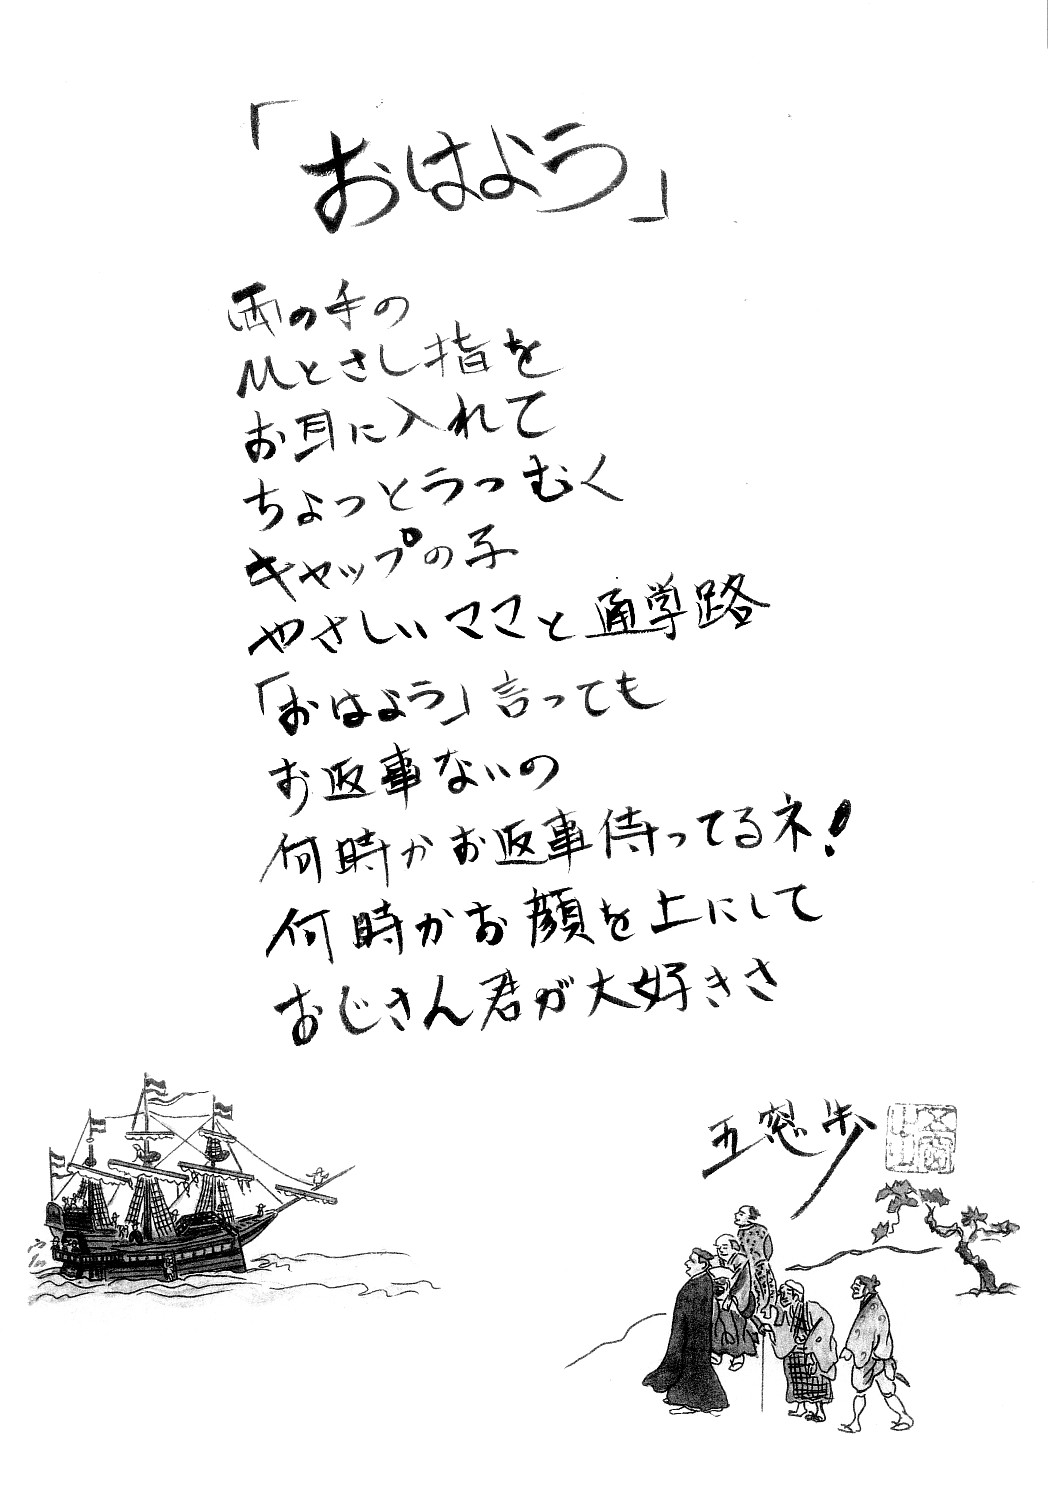 「おはよう」
両の手の
人さし指を
お耳に入れて
ちょっとうつむく
キャップの子
やさしいママと通学路
「おはよう」言っても
お返事ないの
何時かお返事待ってるネ!
何時かお顔を上にして
おじさん君が大好きさ
五窓歩